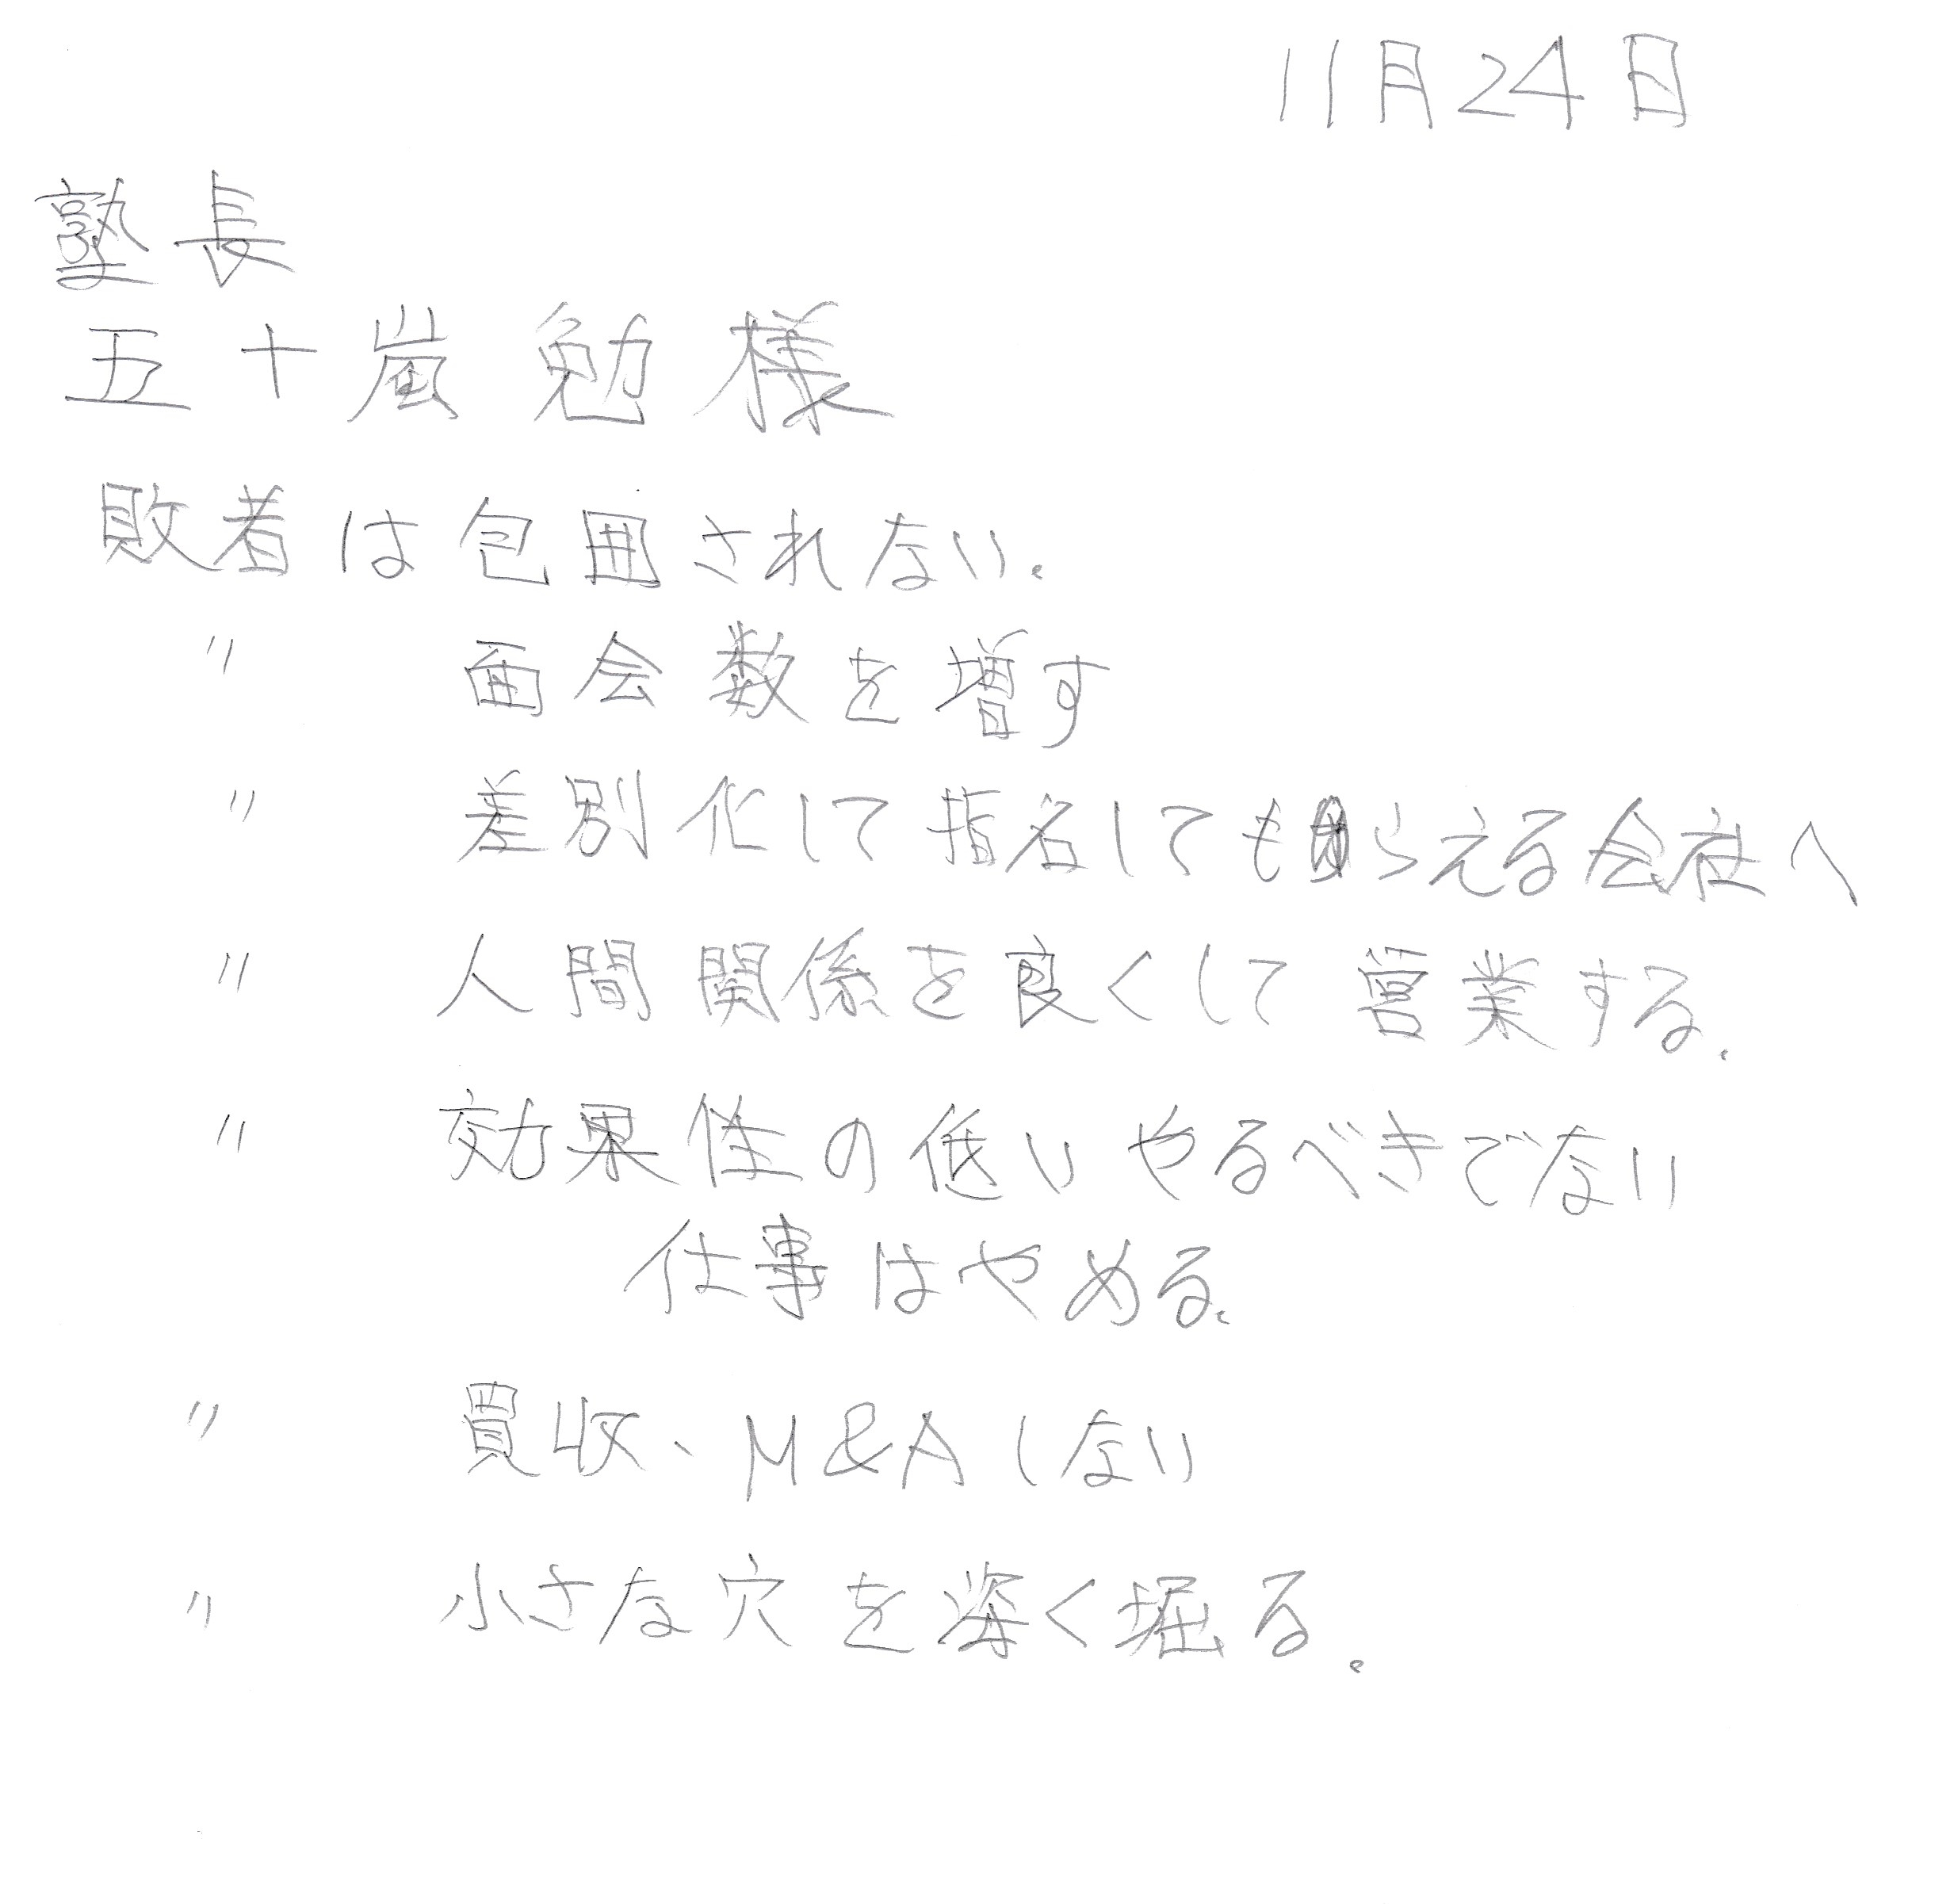 11月24日
塾長
五十嵐勉様
敗者は包囲されない。
〃 面会数を増す
〃 差別化して指名してもらえる会社へ
〃 人間関係を良くして営業する。
〃 効果性の低いやるべきでない
仕事はやめる。
〃 買収、M&Aしない
〃 小さな穴を深く掘る。